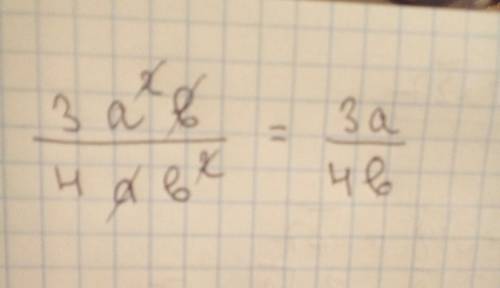 3a²b / 4ab² = 3a / 4b